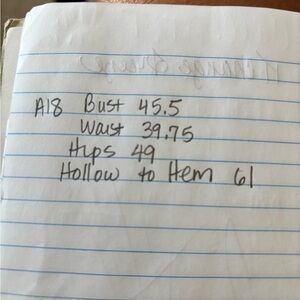 A18 Bust 45.5
Waist 39.75
Hips 49
Hollow to Hem 61